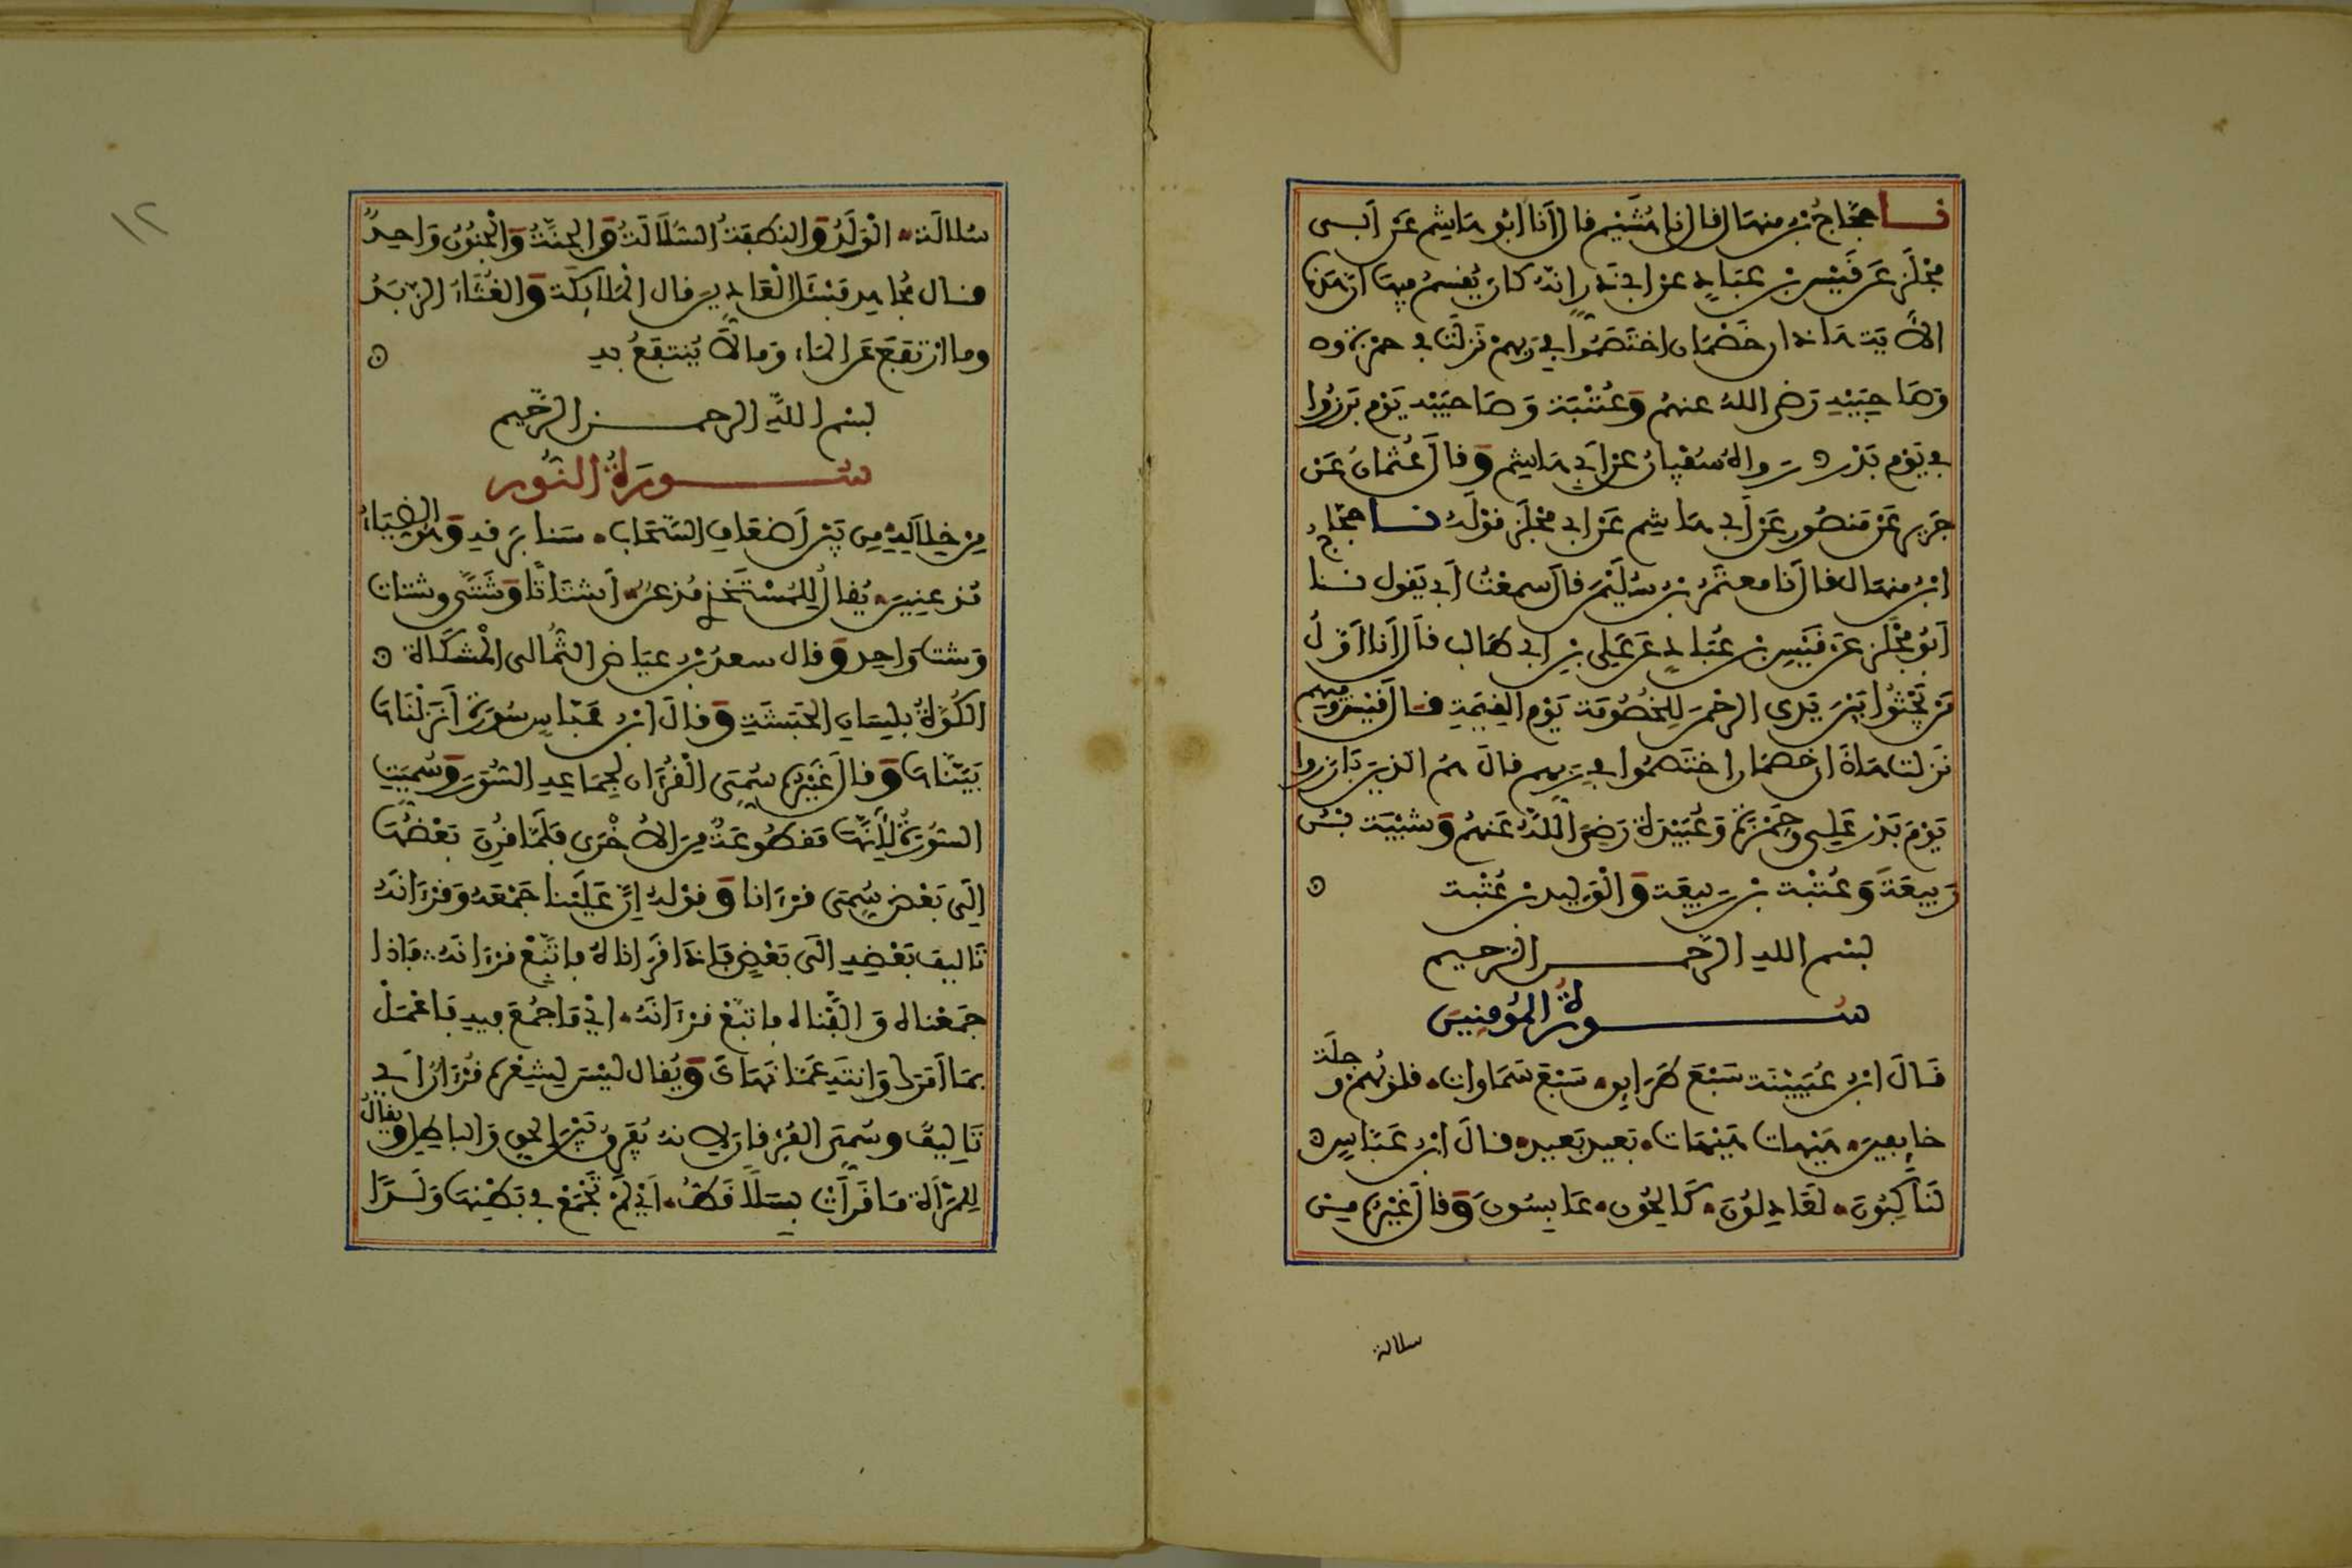 نا حَجَّاجُ بْنُ مِنهَال قال انا هُشَيْم قال أَنَا ابُو هَاشِم عَنْ أَبِى
مِجْلَزٍ عَن قَيْسِ بْنِ عبَادٍ عن ابِى ذَرٍ انهُ كان يُقسِمُ فِيهَا ان هَذِهِ
الأَيَة هَاذان خَصْمَان اختَصَمُوا فِى رَبِهِمْ نَزلَتْ فِى حمزة وه
وَصَاحِبَيْهِ رَضى اللهُ عنهمُ وَعُتْبَة وَصَاحبَيْهِ يَوْم بَرزُوا
فِى يَوْم بَدْر رَواهُ سُفْيانُ عن أَبِى هَاشِم وَقالَ عُثْمانُ عَن
جَرِير عَنْ مَنصُور عَنْ أَبِى هَاشِم عَنْ ابِى مِجْلَز قَوْلَهُ نا حَجَّاجُ
ابْنُ مِنهَال قال أَنا معتَمِرُ بْنُ سُلَيْمن قال سمِعْتُ أَبِى يَقول نا
أَبُو مِجْلَز عَن قَيْسِ بْنِ عُبَادٍ عَن عَلِى بْنِ ابِى طَالب قال أَنا أَوَّلُ
مَن يَجْثُوا بَيْنَ يَدَىِ الرحْمن لِلْخُصُومَة يَوْم القِيَمَةِ قال قَيْس وَفِيهِم
نَزلت هَاذَان خصمَان اختَصَمُوا فِى رَبِهِم قالَ هُمُ الذِينَ بَارَزوا
يَوْمَ بَدْر عَلِى وحَمْزَة وَعُبَيْدَة رَضِىَ اللَّهُ عَنهُمُ وَشَيْبَة بْنُ
رَبِيعَةَ وَعُتْبَة بْن رَبِيعَة وَالْوَلِيد بْن عُتْبة
بسْم اللهِ الرَّحمن الرَّحِيم
سُورةُ المُؤمِنِينَ
قَالَ ابْنُ عُيَيْنَة سَبْعَ طَرَايِق سَبْعَ سَمَاوات قلوبُهمْ وَجلَة
خايِفِين هَيْهات هَيْهَات بَعِيد بَعِيد قالَ ابْنُ عَبَّاسٍ
لَنَاكِبُونَ لَعَادِلُونَ كَالِحُون عَابِسُونَ وَقالَ غَيْرهُ مِن
سلالة
سُلالَة الْوَلَدُ وَالنطفَةُ السُلَالَةُ وَالجِنَّةُ وَالْجُنُونُ وَاحِدٌ
قال مُجاهِد فَسْئَلِ الْعَادِينَ قال الْمَلَائِكَة وَالغُثَاءُ الزبَدُ
وما ارْتَفَعَ عَن المَاء وَمالَا يُنتَفَعُ بهِ
بسْم اللَّهِ الرحمن الرَّحِيم
سُورَةُ النُّور
مِنْ خِلَالِهِ مِن بَيْن أَضعَافِ السَّحَاب سَنا بَرقه وَهُوَ الضِيَاءُ
مُذعِنِين يُقالُ لِلْمُسْتَخْذِى مُذعِنٌ أَشتَاتًا وَشَتَّى وشتات
وَشت وَاحِد وَقال سعدُ بْنُ عيَاض الثُمالِى الْمشكَاة
الكُوَّةُ بلِسَان الحَبَشَةِ وَقالَ ابْنُ عَبَّاسٍ سُورَة أَنزَلْنَاهَا
بَيَّنَّاهَا وَقالَ غَيْرهُ سُمِىَ الْقُرْآن لِجمَاعَةِ السُّوَر وَسُمِيَتِ
السُّورَةُ لِأَنهَّا مَقطُوعَةٌ مِنَ الأُخْرَى فَلَمَّا قُرِنَ بَعْضُهَا
إِلَى بَعْض سُمِىَ قرْءَانا وَقوْلهُ إِنَّ عَلَيْنا جَمْعَهُ وَقرْءَانَهُ
تَاليفَ بَعْضِهِ الَى بَعْضٍ فَإِذَا قَرَأناهُ فاتَّبِعْ قرْءَانهُ فَاذا
جمَعْناه وَالَّفْناه فاتبِعْ قرْءَانَهُ أىْ مَا جُمِعَ فِيهِ فَاعْمَلْ
بمَا أَمَرَك وَانتَهِ عَمَّا نَهَاكَ وَيُقال ليْس لِشِعْرهِ قُرْءَانٌ أَى
تَالِيفٌ وسُمِىَ الفُرقان لِانهُ يُفَرِقُ بَيْنَ الحَق وَالبَاطِل وَيقالُ
لِلْمَرْأَة مَا قَرَأَتْ بِسَلًا قَطُّ أَىْ لَمْ تَجْمَعْ فِى بَطْنِهَا وَلَدًا
١٢